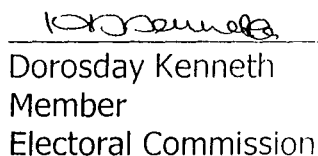 Dorosday Kenneth
Member
Electoral Commission